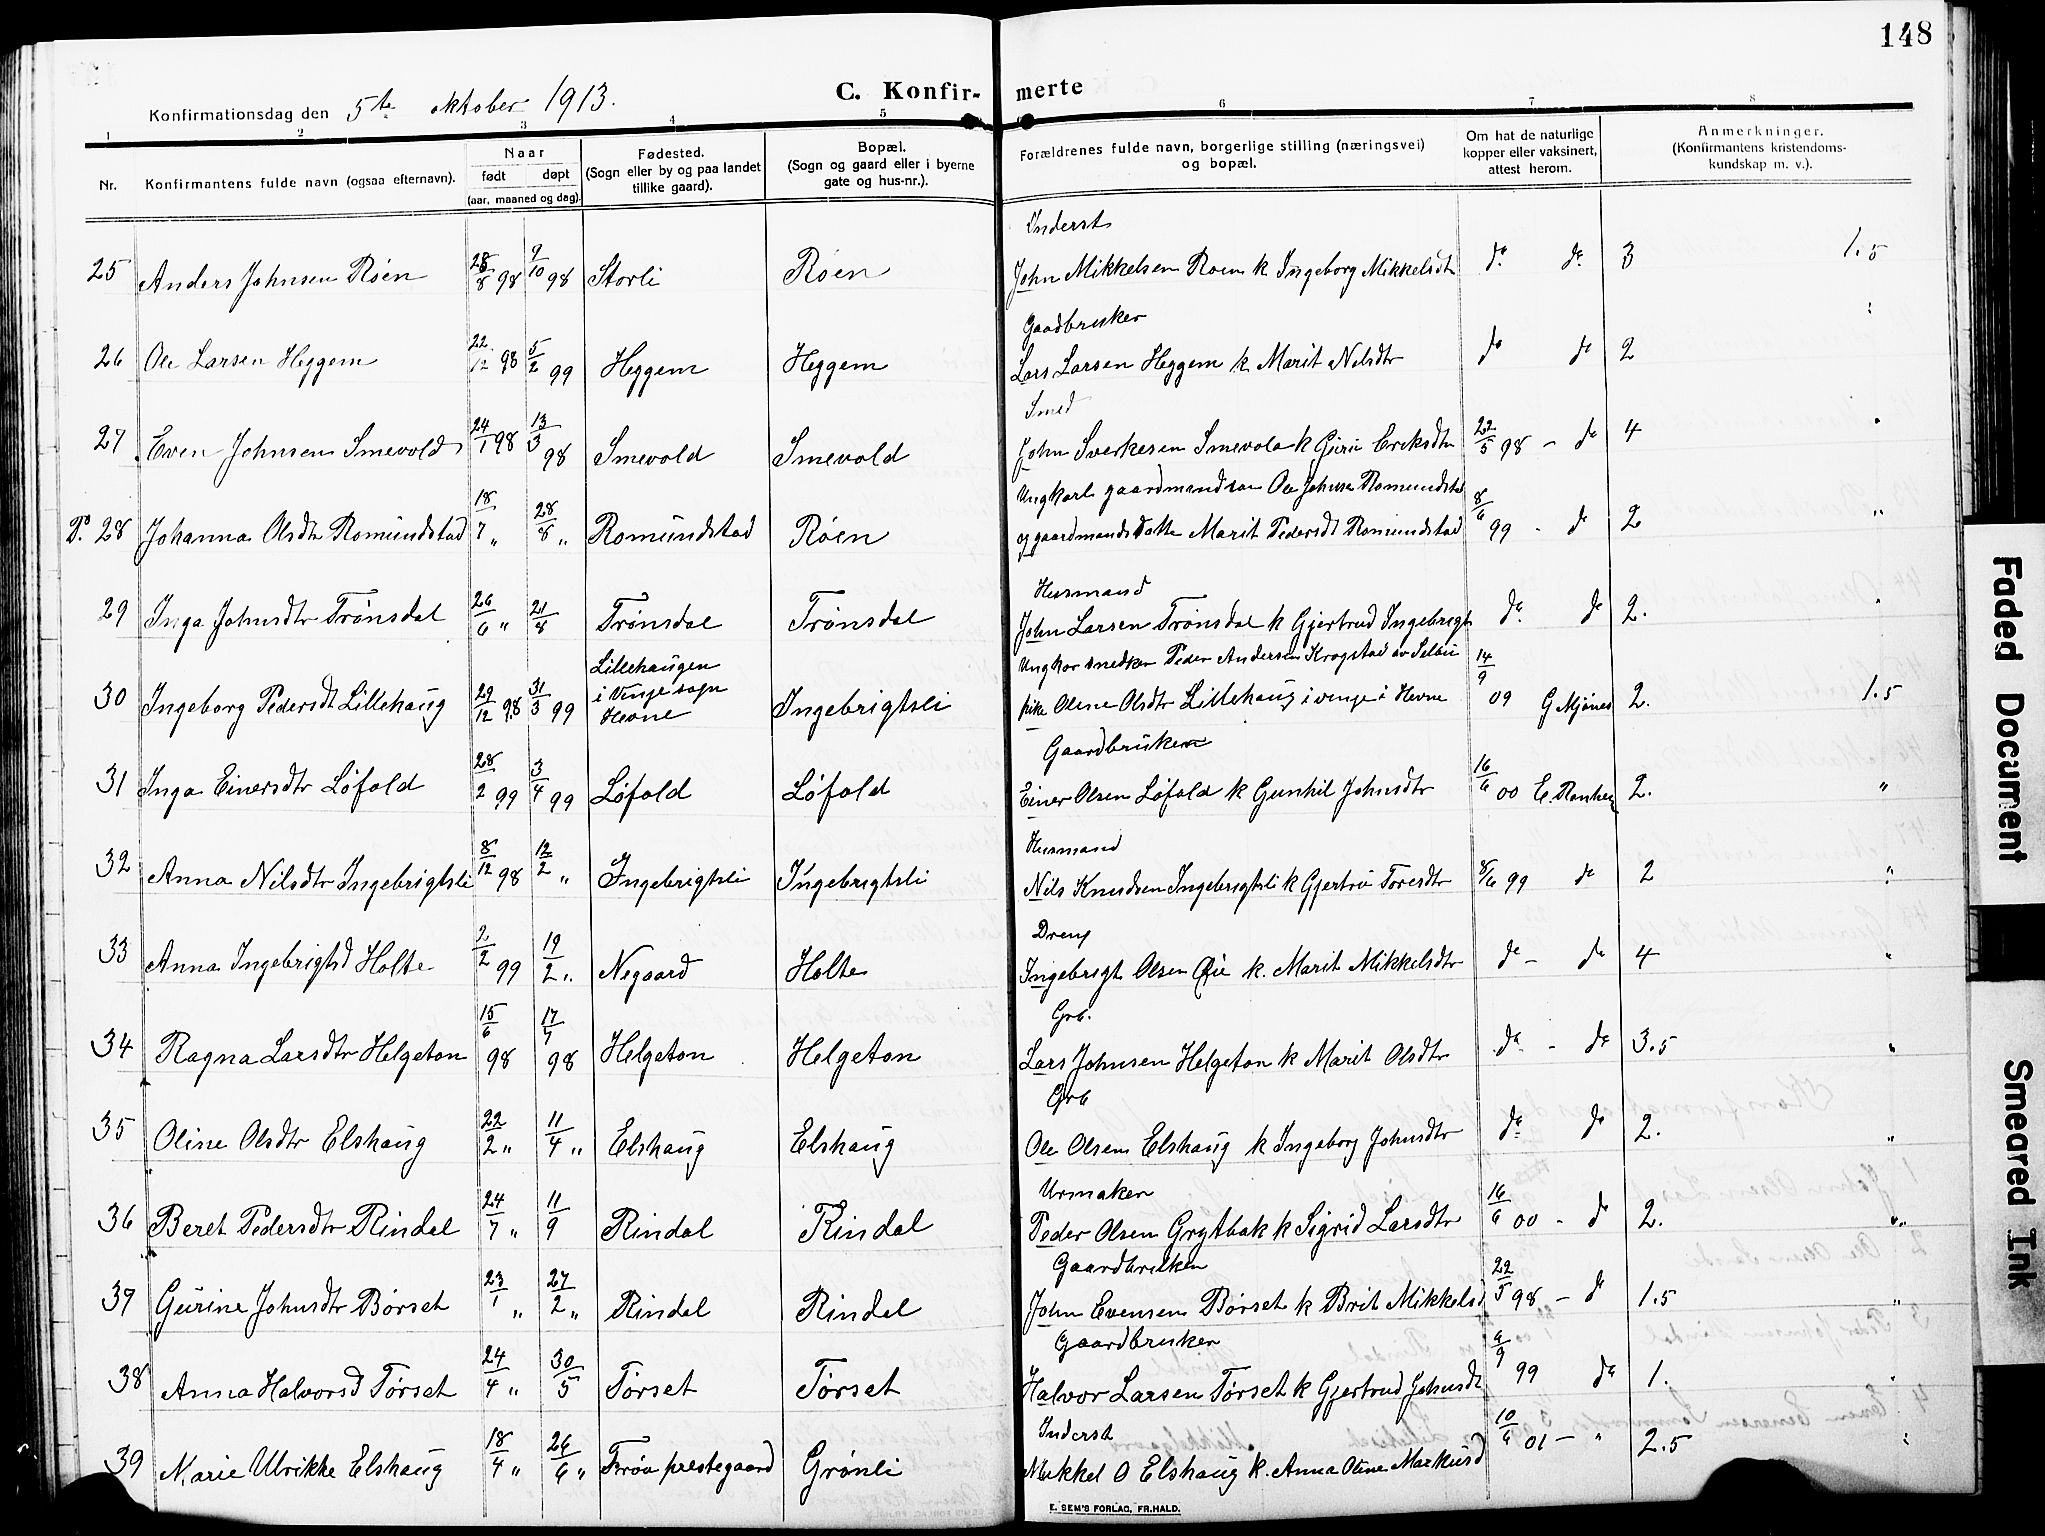 148
Konfirmationsdag den 5te oktober 1913.
C. Konfir- merte
1 2 3 4 5 6 7 8
Nr. Konfirmantens fulde navn (ogsaa efternavn). Naar født døpt (aar, maaned og dag). Fødested. (Sogn eller by og paa landet tillike gaard). Bopæl. (Sogn og gaard eller i byerne gate og hus-nr.). Forældrenes fulde navn, borgerlige stilling (næringsvei) og bopæl. Om hat de naturlige kopper eller vaksinert, attest herom. Anmerkninger. (Konfirmantens kristendoms- kundskap m. v.).
Inderst
25 Anders Johnsen Røen 28/8 98 9/10 98 Storli Røen John Mikkelsen Roen k Ingeborg Mikkelsdtr do do 3 1.5
Gaadbruker
26 Ole Larsen Heggem 22/12 98 5/2 99 Heggem Heggem Lars Larsen Heggem k Marit Nilsdtr do do 2 "
Smed
27 Even Johnsen Smevold 24/1 98 13/3 98 Smevold Smevold John Sverkesen Smevold k Guri Eriksdtr 22/5 98 - do 4 "
Ungkarl gaardmandsøn Ole Johnsen Romundstad
28 Johanna Olsdtr Romundstad 18/7 " 28/8 " Romundstad Røen og gaardmandsdatter Marit Pedersdt Romundstad 8/6 99 - do 2 "
Husmand
29 Inga Johnsdtr Trønsdal 26/6 " 21/8 Trønsdal Trønsdal John Larsen Trønsdal k Gjertrud Ingebrigt do do 2. "
Lillehaugen Ungkar snedker Peder Andersen Krogstad av Selbu
30 Ingeborg Pedersdt Lillehaug 29/12 98 31/3 99 i Vinje sogn Hevne Ingebrigtsli pike Oline Olsdtr Lillehaug i vinge i Hevne 14/9 09 G Mjønes 2. 1.5
Gaardbruker
31 Inga Einersdtr Løfald 28/2 99 3/4 99 Løfald Løfald Einer Olsen Løfald k Gunhil Johnsdtr 16/6 00 2. "
Husmand
32 Anna Nilsdtr Ingebrigtsli 8/12 98 12/2 " Ingebrigtsli Ingebrigtsli Nils Knudsen Ingebrigtsli k Gjertru Toresdtr 8/6 99 do 2 "
Dreng
33 Anna Ingebrigtsd Holte 2/2 99 19/2 " Negaard Holte Ingebrigt Olsen Øie k. Marit Mikkelsdtr do - do 4 "
Grb.
34 Ragna Larsdtr Helgeton 15/6 98 17/7 98 Helgeton Helgeton Lars Johnsen Helgeton k Marit Olsdtr do - do 3.5 "
Grb
35 Oline Olsdtr Elshaug 22/2 " 11/4 " Elshaug Elshaug Ole Olsen Elshaug k Ingeborg Johnsdtr do do 2. "
Urmaker
36 Beret Pedersdtr Rindal 24/7 " 11/9 Rindal Rindal Peder Olsen Grytbak k Sigrid Larsdtr 16/6 00 - do 2. "
Gaardbruker
37 Gurine Johnsdtr Børset 23/1 " 27/2 " Rindal Rindal John Evensen Børset k Brit Mikkelsd 22/5 98 - do 1.5 "
Gaardbruker
38 Anna Halvorsd Tørset 24/4 " 30/5 Tørset Tørset Halvor Larsen Tørset k Gjertrud Johnsdt 99 do 1. "
Inderst
39 Marie Ulrikke Elshaug 18/4 " 26/6 " Frøia prestegaard Grønli Mikkel O Elshaug k. Anna Oline Markusd 10/6 01 - " 2.5 "
E. SEM'S FORLAG, FR.HALD.
Faded Document
Smeared Ink